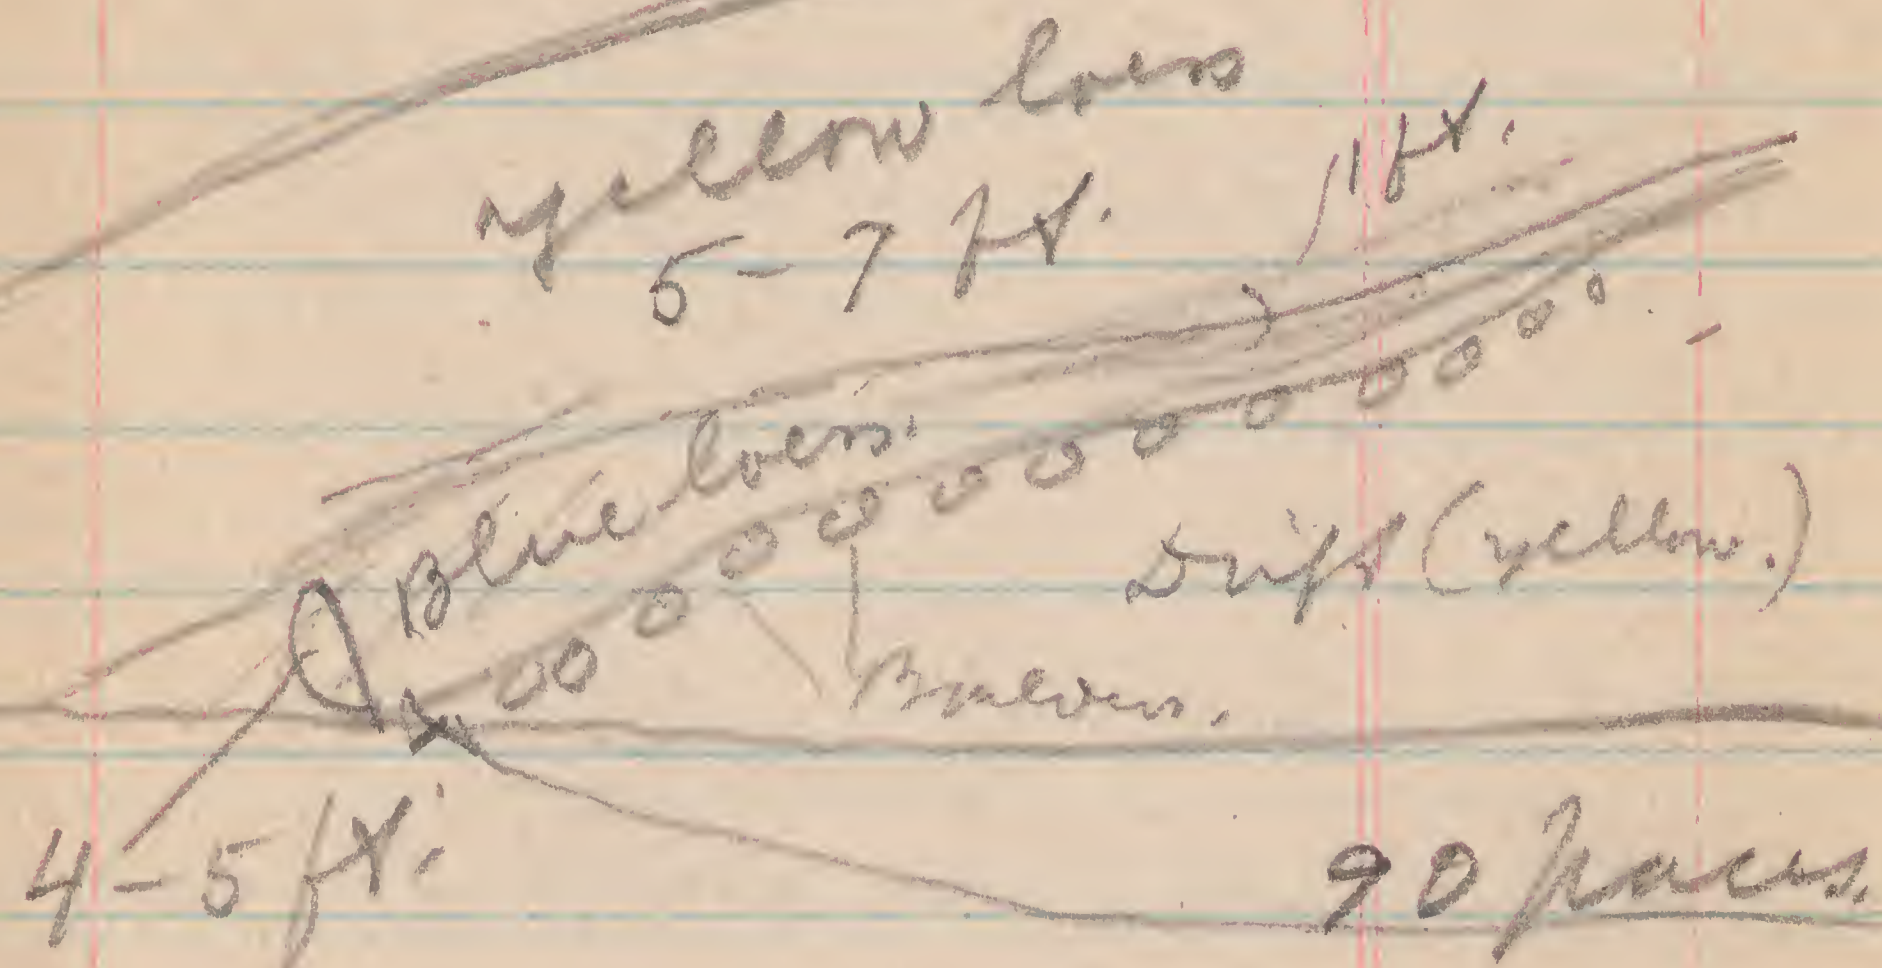 Yellow loess
5-7 ft.
11 ft.
Blue loess.
Drift (yellow.)
Bowlders.
4-5 ft.
90 paces